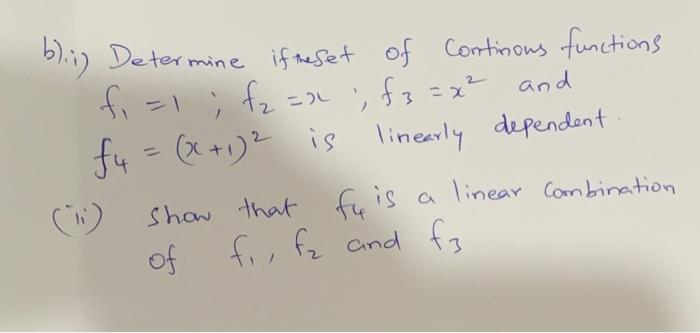 b).i) Determine if the set of Continous functions
f₁ = 1 ; f₂ = x ; f₃ = x² and
f₄ = (x+1)² is linearly dependent.
(ii) Show that f₄ is a linear Combination
of f₁, f₂ and f₃